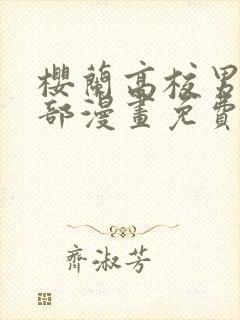 櫻蘭高校男
部漫畫免費
齊淑芳